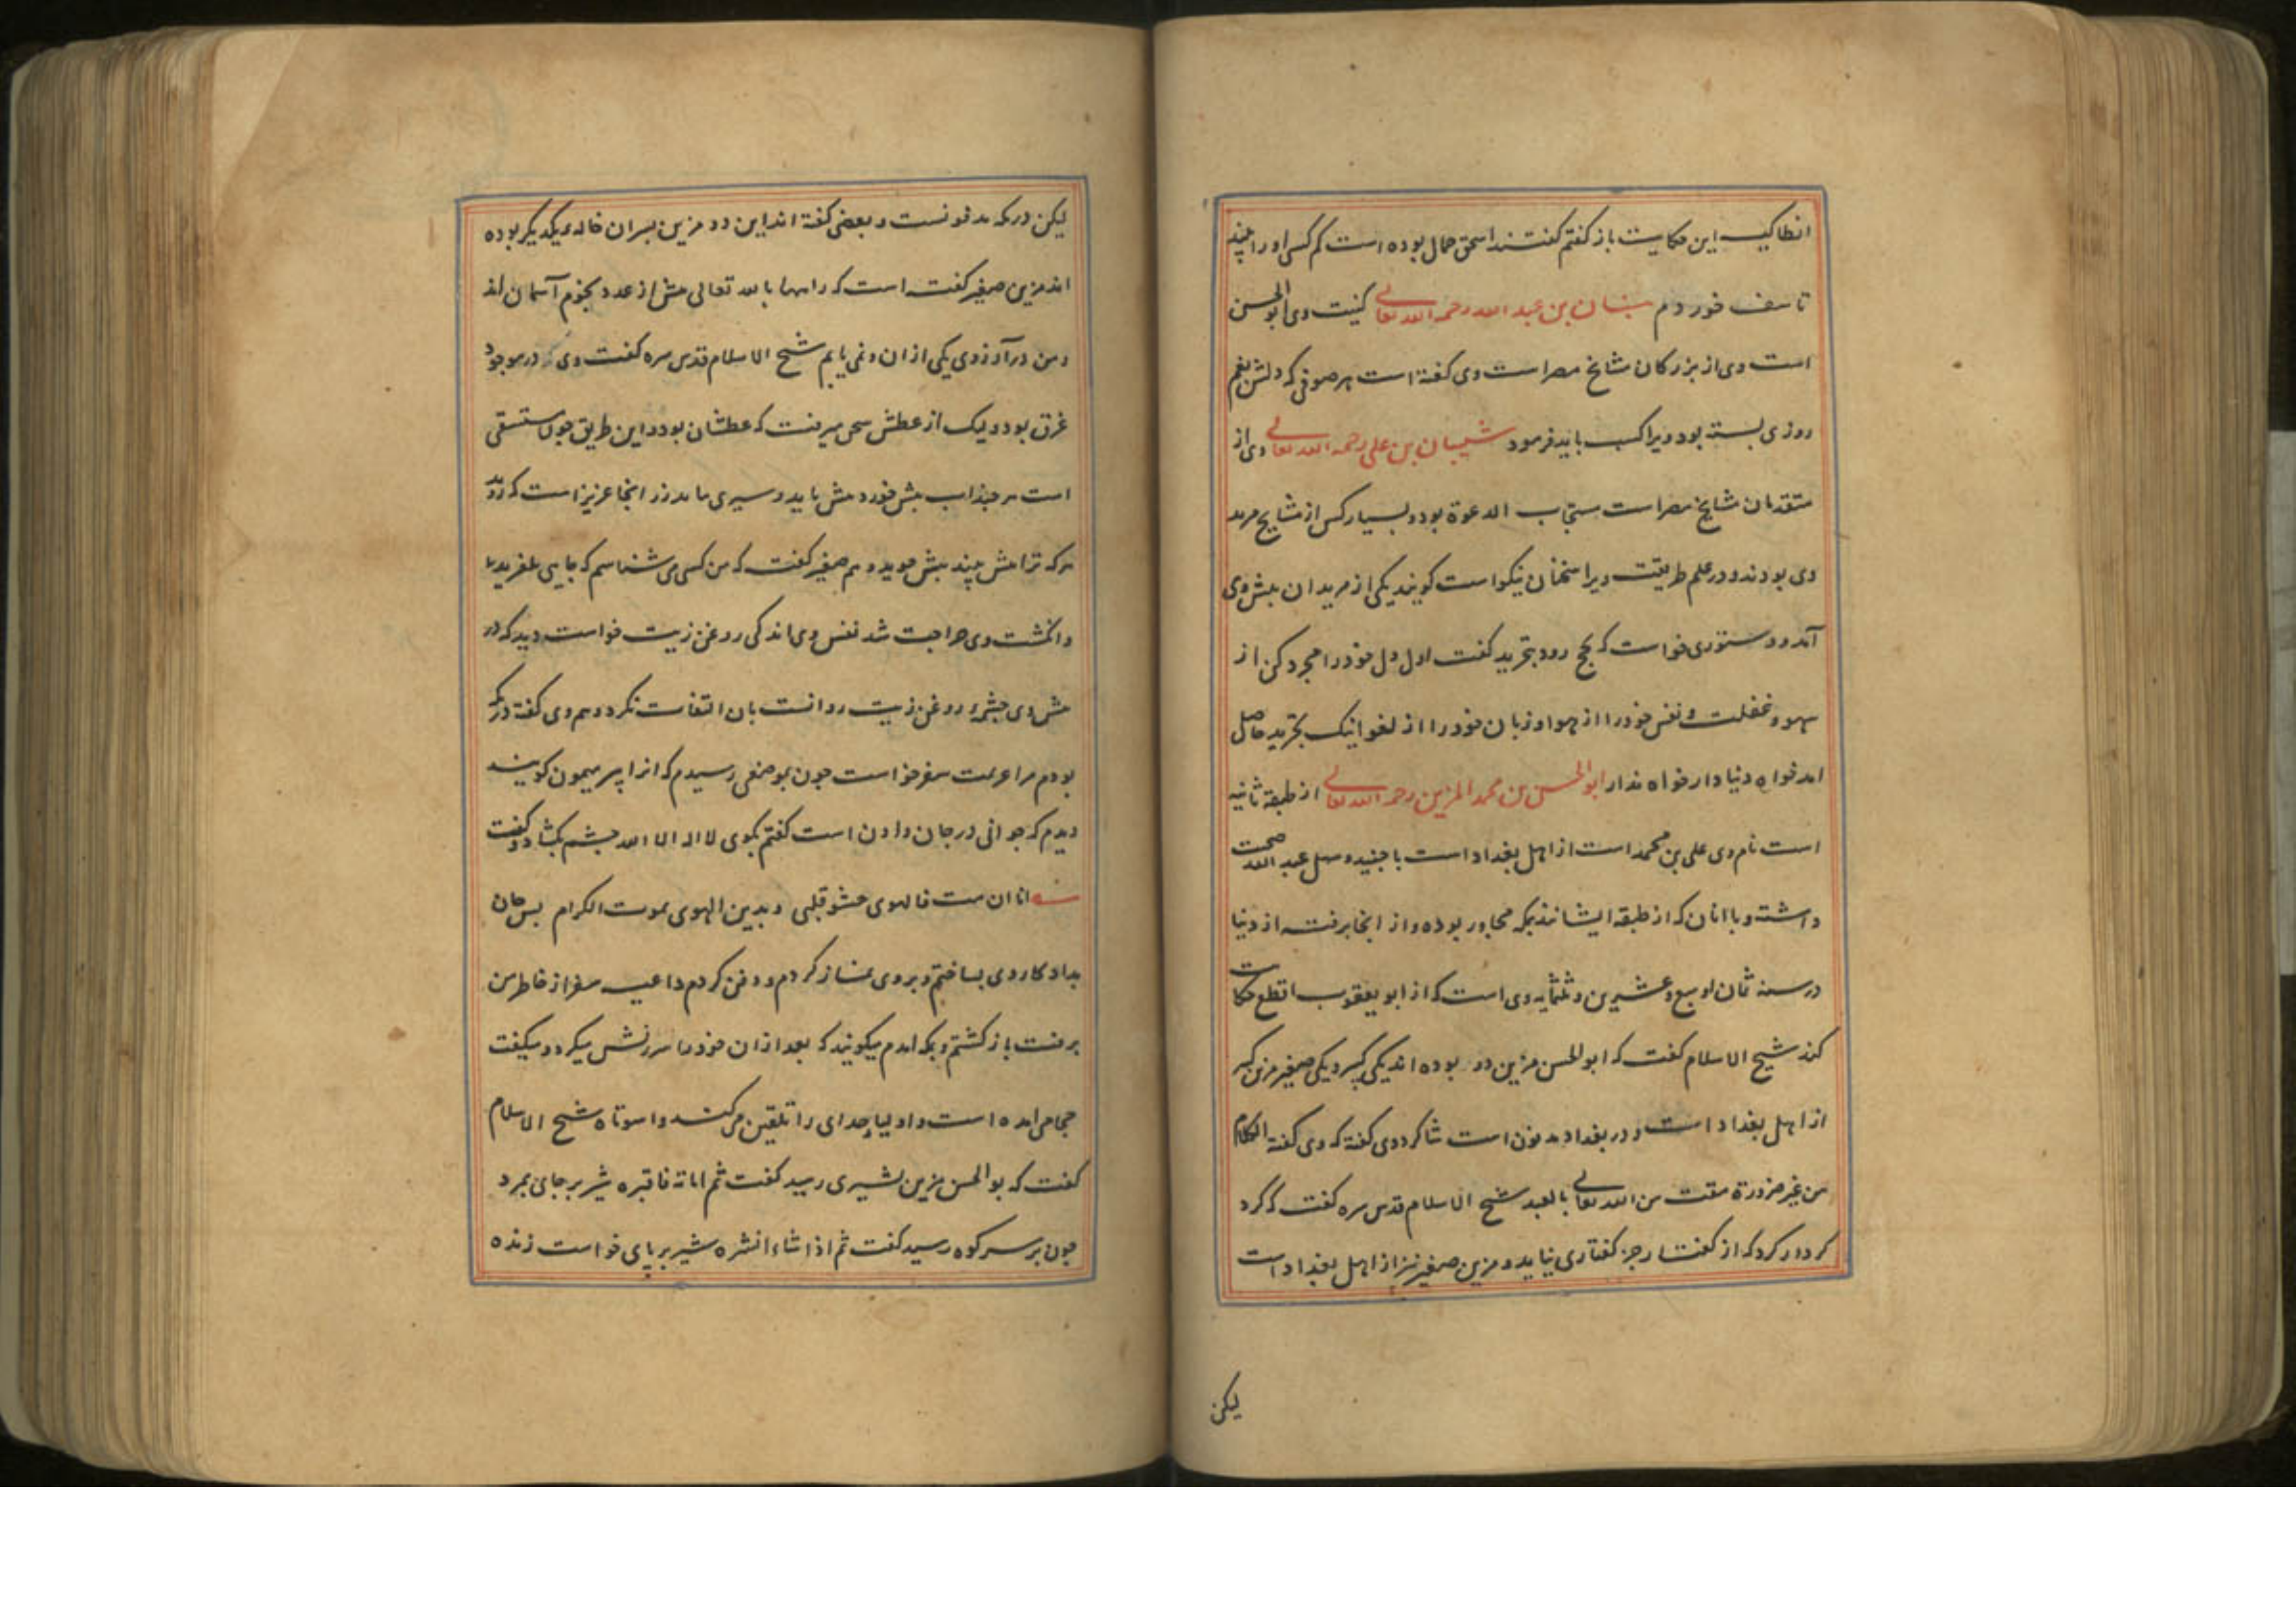 انطاکیه این حکایت باز گفتم گفتند اسحق حمال بوده است کم کسی او را بیند
تاسف خوردم بنان بن عبد الله رحمه الله تعالی کنیت وی ابو الحسن
است وی از بزرگان مشایخ مصر است وی گفته است هر صوفی که دلش بغم
روزی بسته بود ویرا کسب باید فرمود شیبان بن علی رحمه الله تعالی وی از
متقدمان مشایخ مصر است مستجاب الدعوة بود و بسیار کس از مشایخ مرید
وی بودند و در علم طریقت ویرا سخنان نیکو است گویند یکی از مریدان پیش وی
آمد و دستوری خواست که بحج رود بتجرید گفت اول دل خود را مجرد کن از
سهو و غفلت و نفس خود را از هوا و زبان خود را از لغو اینک تجرید حاصل
امد خواه دنیا دار خواه ندار ابو الحسن بن محمد المزین رحمه الله تعالی از طبقه ثانیه
است نام وی علی بن محمد است از اهل بغداد است با جنید و سهل عبد الله صحبت
داشته و با انان که از طبقه ایشانند بمکه مجاور بوده و از انجا برفته از دنیا
در سنه ثمان او سبع و عشرین و ثلثمایه وی است که از ابو یعقوب اقطع حکایت
کند شیخ الاسلام گفت که ابو الحسن مزین دو بوده اند یکی کبیر و یکی صغیر مزین کبیر
از اهل بغداد است و در بغداد مدفون است شاگرد وی گفته که وی گفته الکلام
من غیر ضرورة مقت من الله تعالی بالعبد شیخ الاسلام قدس سره گفت که گرد
کردار گرد که از گفتار جز گفتاری نیاید و مزین صغیر نیز از اهل بغداد است
لیکن
لیکن در مکه مدفونست و بعضی گفته اند این دو مزین پسران خاله یکدیگر بوده
اند مزین صغیر گفته است که راهها بالله تعالی بیش از عدد نجوم آسمان اند
و من در آرزوی یکی از ان و نمی یابم شیخ الاسلام قدس سره گفت وی در موجود
غرق بود و لیک از عطش سخن میرفت که عطشان بود و این طریق چون مستسقی
است هر چند اب بیش خورد بیش باید و سیری ما بدرزر انجا عزیز است که زوید
هر که ترا بیش بیند بیش جوید و هم صغیر گفت که من کسی می شناسم که جایی بلغزید
و انگشت وی جراحت شد نفس وی اندکی روغن زیت خواست دید که در
پیش وی چشمه روغن زیت روانست بان التفات نکرد و هم وی گفته در مکه
بودم مرا عزیمت سفر خواست چون بموضعی رسیدم که انرا بیر میمون گویند
دیدم که جوانی در جان دادن است گفتم بگوی لا اله الا الله چشم بگشاد و گفت
انا ان مت فالهوی حشو قلبی وبدین الهوی یموت الکرام پس جان
بداد کار وی بساختم و بر وی نماز کردم و دفن کردم داعیه سفر از خاطر من
برفت باز گشتم و بمکه امدم میگویند که بعد از ان خود را سرزنش میکرد و میگفت
حجامی امده است و اولیا خدای را تلقین می کند واسوتاه شیخ الاسلام
گفت که بو الحسن مزین بشیری رسید گفت ثم اماته فاقبره شیر بر جای بمرد
چون بر سر کوه رسید گفت ثم اذا شاء انشره شیر بر پای خواست زنده